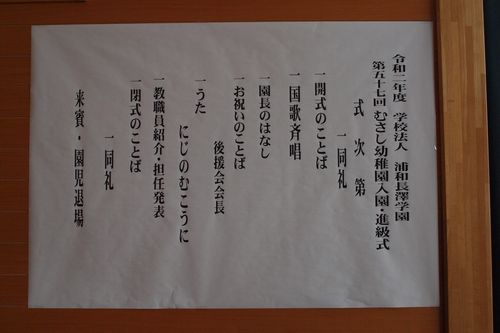 令和二年度　学校法人　浦和長澤学園
第五十七回 むさし幼稚園入園・進級式
式次第
一同礼
一開式のことば
一国歌斉唱
一園長のはなし
一お祝いのことば
後援会会長
一うた
にじのむこうに
一教職員紹介・担任発表
一閉式のことば
一同礼
来賓・園児退場